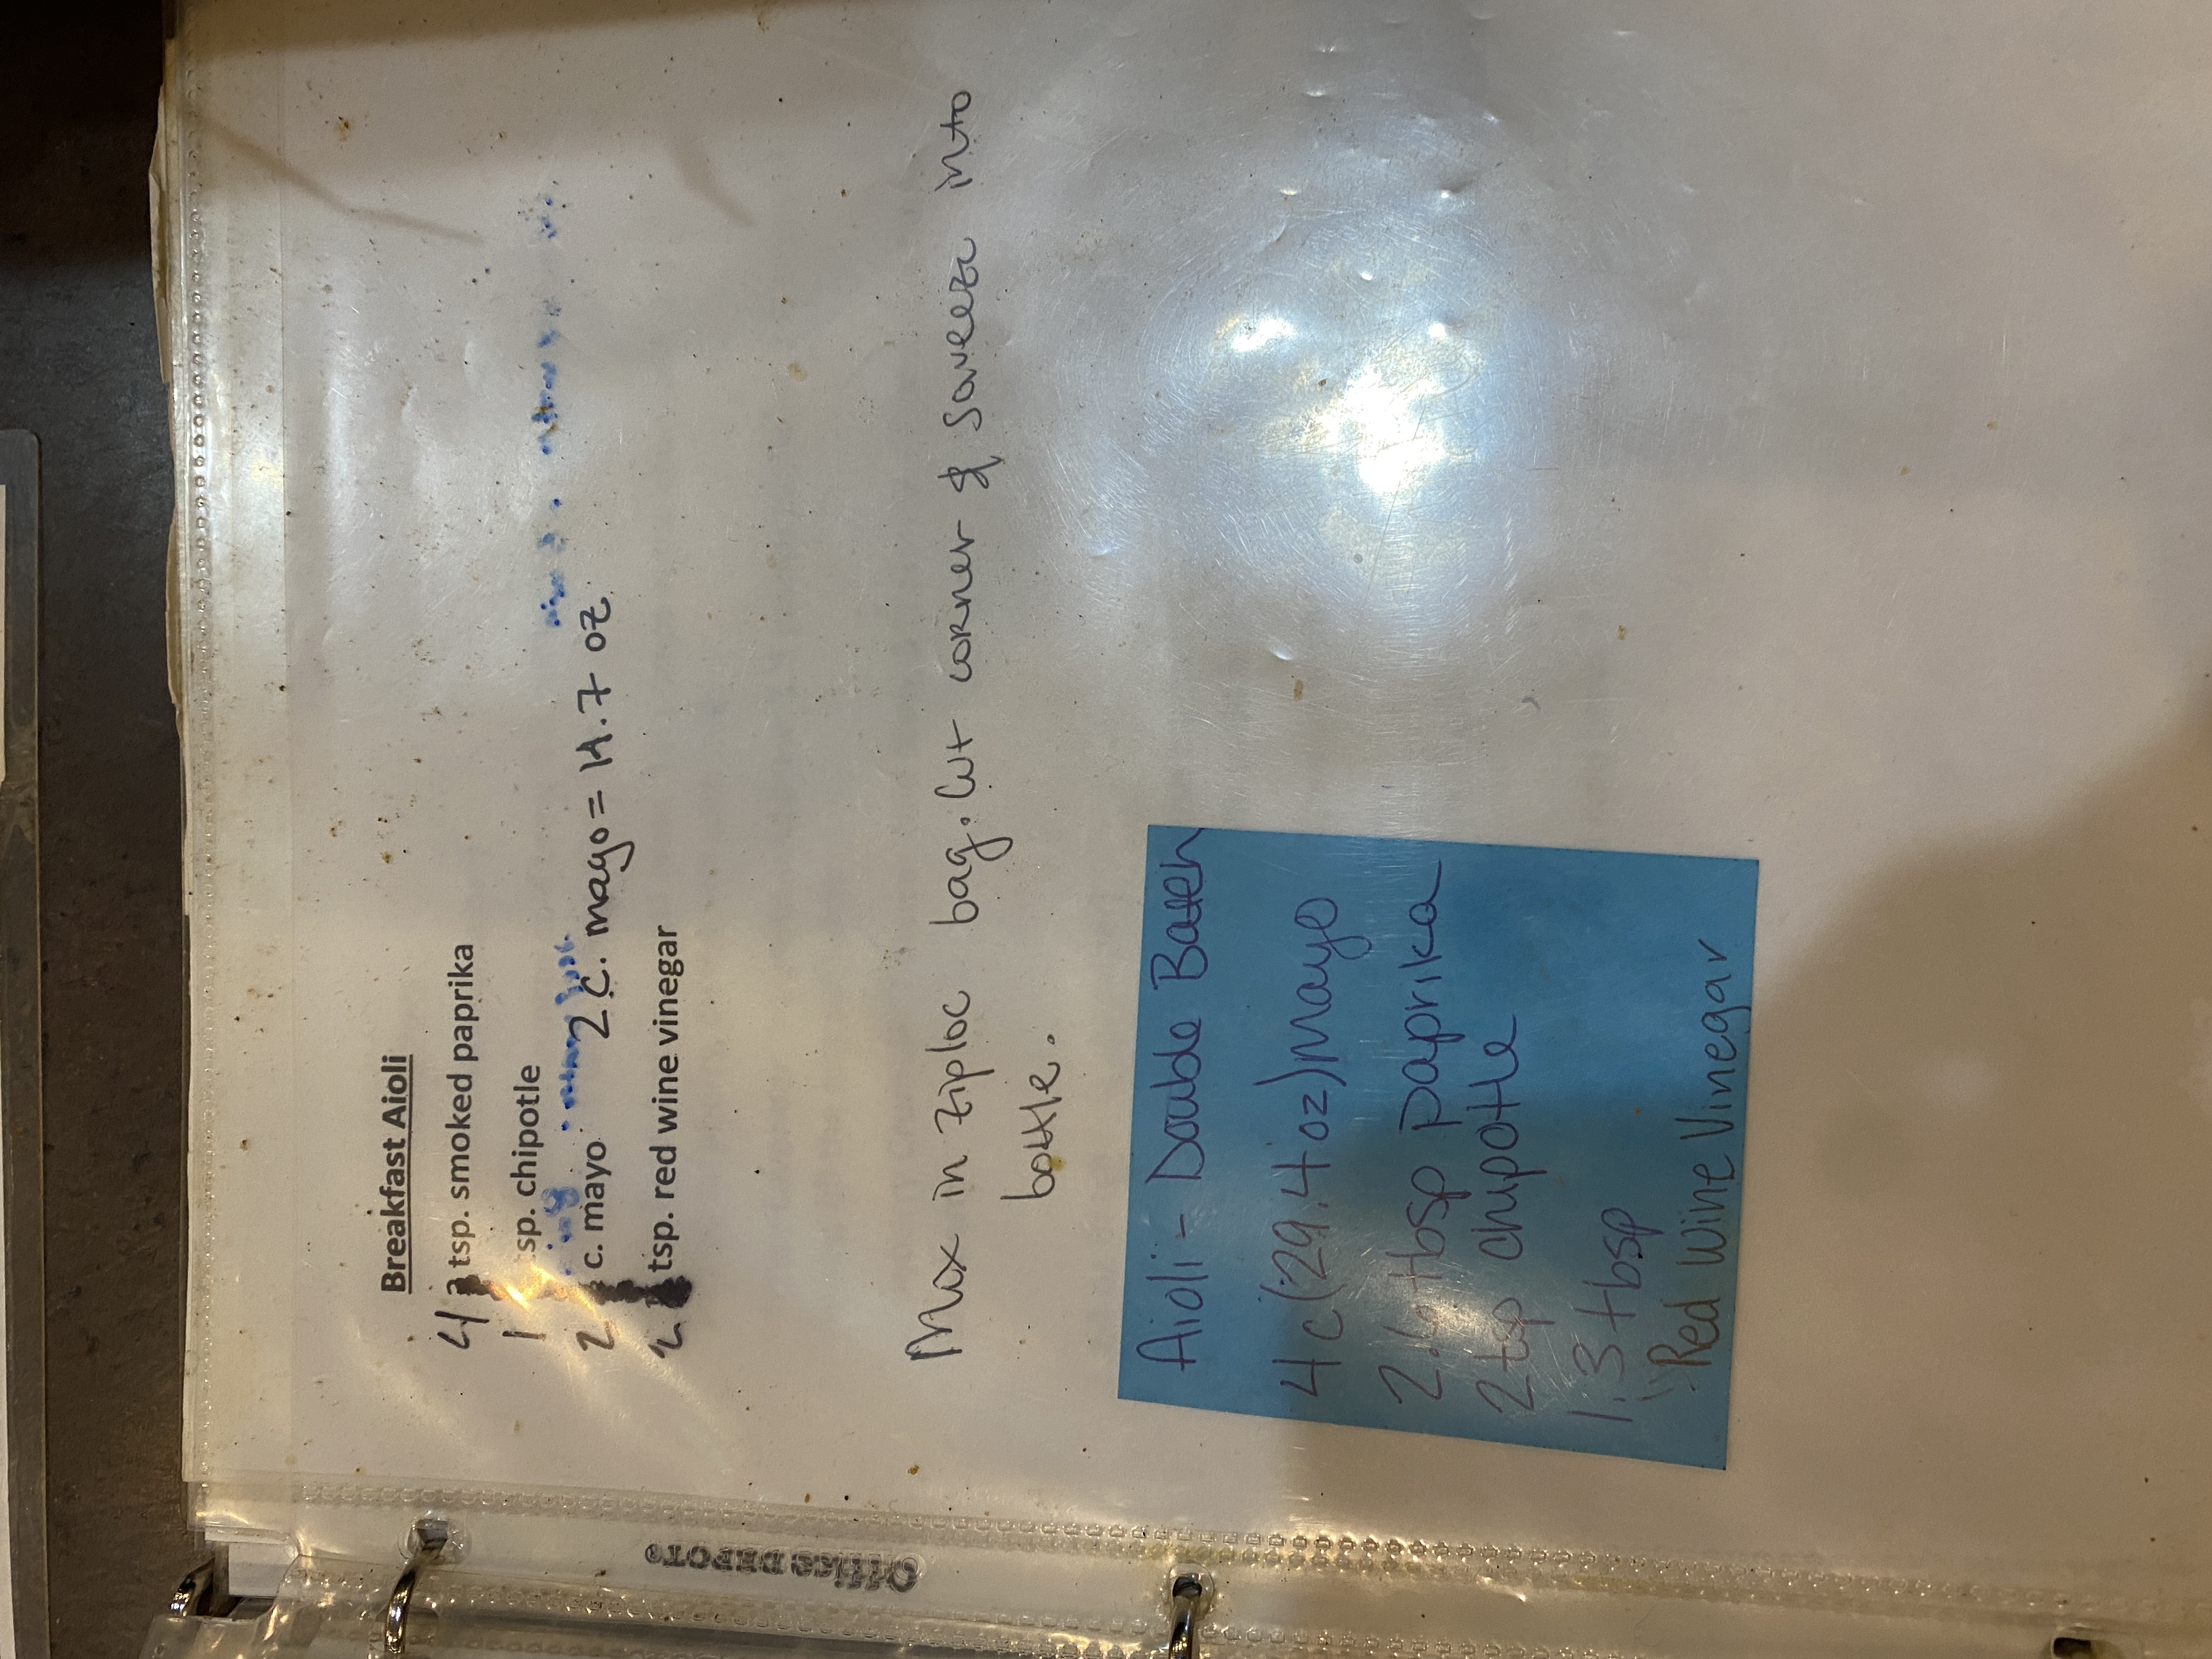 Office DEPOT®
Breakfast Aioli
4 tsp. smoked paprika
1 sp. chipotle
2 c. mayo 2 c. mayo = 14.7 oz
2 tsp. red wine vinegar
Mix in ziploc bag. Cut corner & squeeze into
bottle.
Aioli - Double Batch
4c (29.4oz) Mayo
tbsp paprika
2 tsp chipotle
1.3 tbsp
Red Wine Vinegar